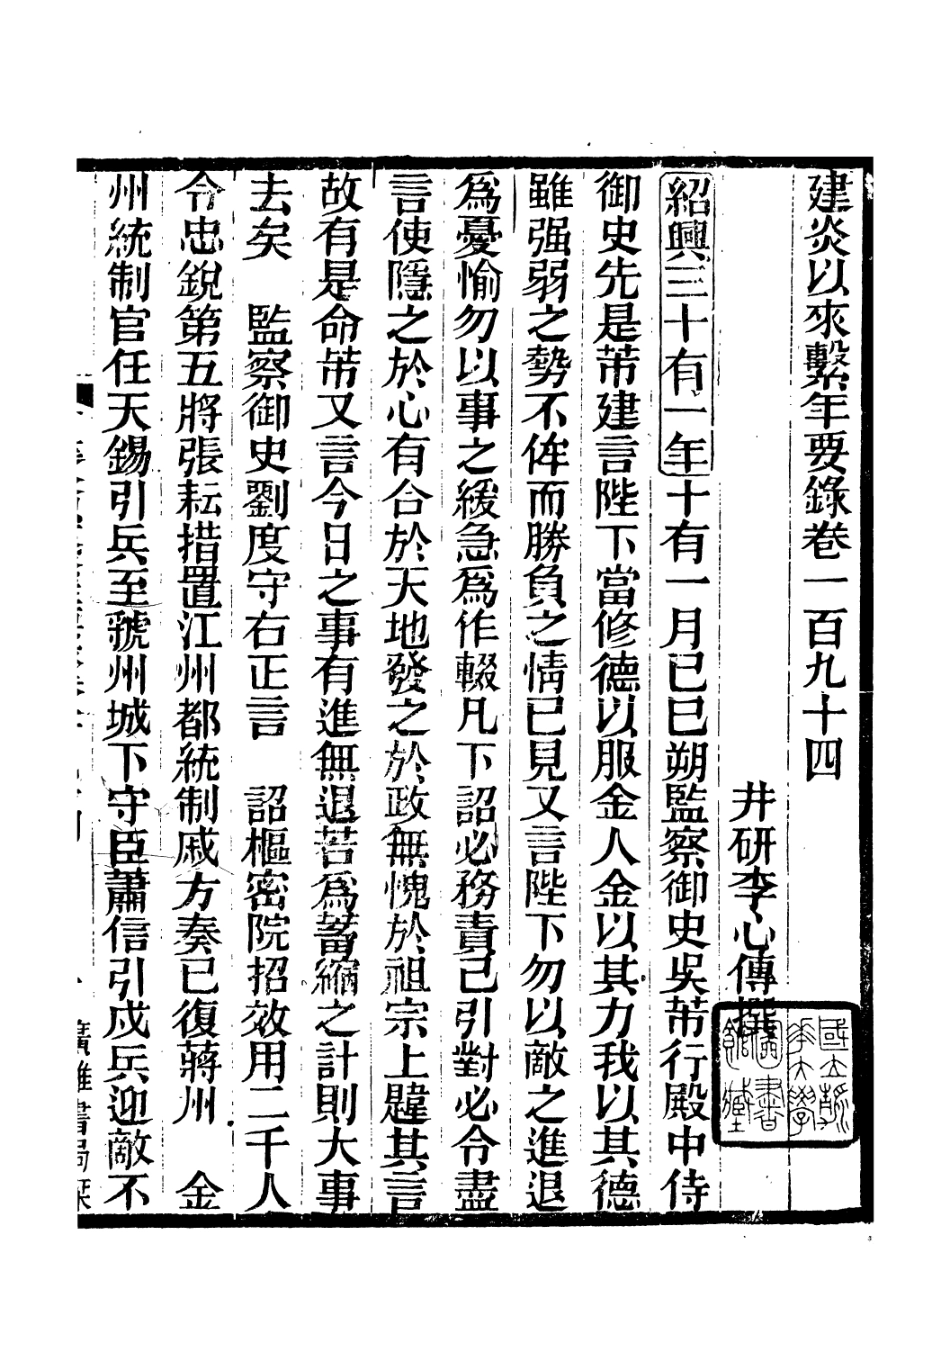 建炎以來繫年要錄卷一百九十四
井研李心傳撰
紹興三十有一年十有一月己巳朔監察御史吳芾行殿中侍
御史先是芾建言陛下當修德以服金人金以其力我以其德
雖强弱之勢不侔而勝負之情已見又言陛下勿以敵之進退
爲憂愉勿以事之緩急爲作輟凡下詔必務責己引對必令盡
言使隱之於心有合於天地發之於政無愧於祖宗上韙其言
故有是命芾又言今日之事有進無退若爲蓄縮之計則大事
去矣　監察御史劉度守右正言　詔樞密院招效用二千人
令忠銳第五將張耘措置江州都統制戚方奏已復蔣州　金
州統制官任天錫引兵至虢州城下守臣蕭信引戍兵迎敵不
廣雅書局栞
國立
大學
圖書
館藏